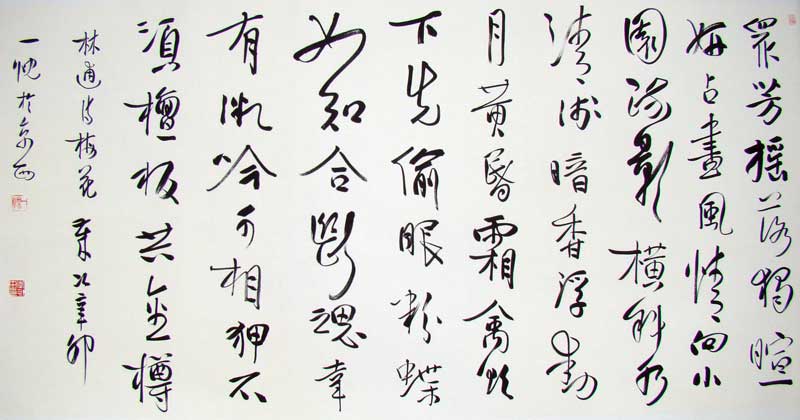 眾芳摇落獨暄
妍占盡風情向小
園疏影橫斜水
清淺暗香浮動
月黄昏霜禽欲
下先偷眼粉蝶
如知合斷魂幸
有微吟可相狎不
須檀板共金樽
林逋詩梅花 歲次辛卯
一 於京西